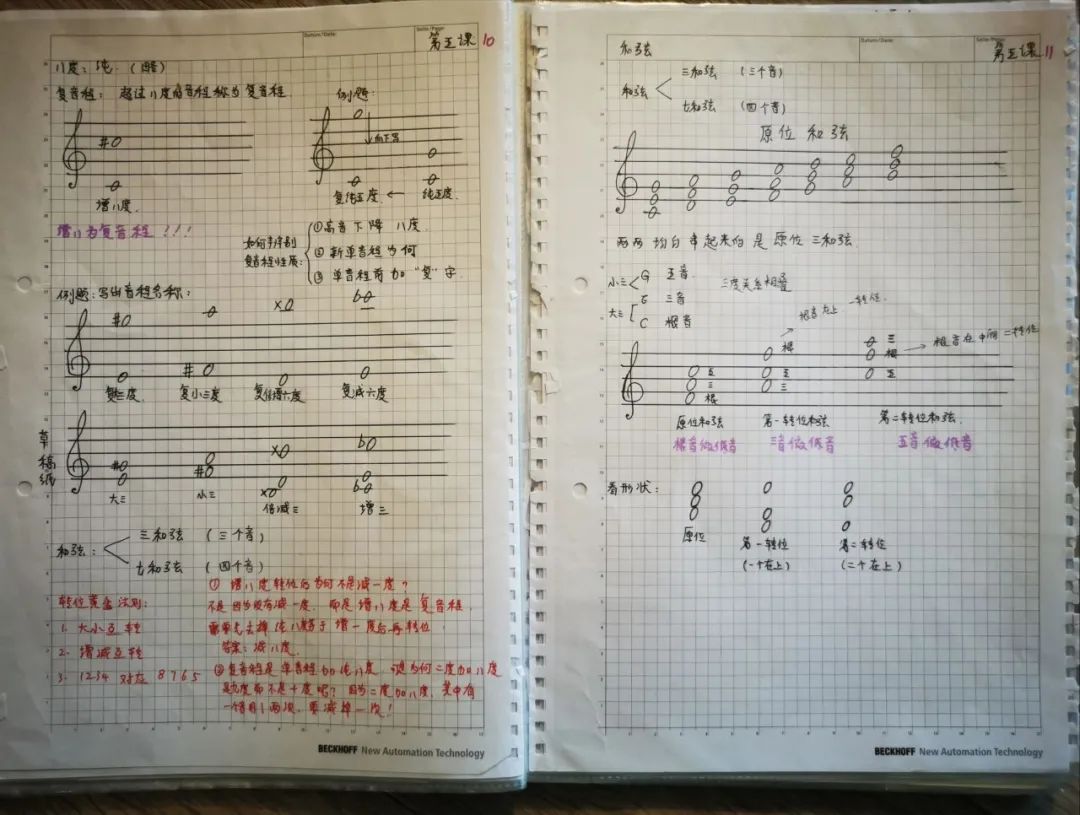 Datum/Date:
Seite/Page:
第五课 10
八度：纯.（增）
复音程：超过八度的音程称为复音程.
例题：
向下写
增八度.
复纯五度. ← 纯五度.
增八为复音程！！！
如何判别
复音程性质：
①高音下降 八度.
②新单音程为何
③单音程前加"复"字.
例题：写出音程名称：
复小三度
复倍增六度
复减六度
草稿纸
大三
小三
倍减三
增三
和弦：
三和弦 （三个音）
七和弦 （四个音）
转位黄金法则：
1. 大小互转
2. 增减互转
3. 1234 对应 8765
① 增八度转位后为何不是减一度？
不是因为没有减一度. 而是增八度是复音程.
需要先去掉纯八度等于增一度后再转位.
答案：减八度.
②复音程是单音程加纯八度. 为何二度加八度
是九度而不是十度呢？因为二度加八度，其中有
一个音引两次，要减掉一次！
BECKHOFF New Automation Technology
Datum/Date:
Seite/Page:
第五课 11
和弦
和弦
三和弦 （三个音）
七和弦 （四个音）
原位 和弦
两两均白串起来的是原位三和弦.
小三
G 五音
三度关系相叠
大三
E 三音
C 根音
根音在上 一转位.
根音在中间 二转位
根
五
三
根
五
三
三
根
五
原位和弦
第一转位和弦
第二转位和弦.
根音做低音
三音做低音
五音做低音
看形状：
原位
第一转位
（一个在上）
第二转位
（二个在上）
BECKHOFF New Automation Technology